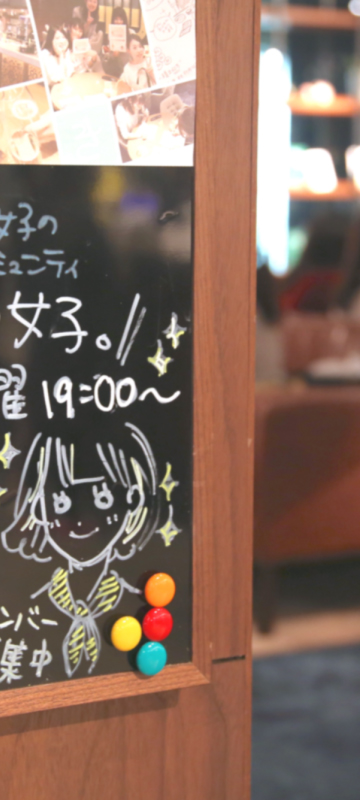 女子の
ミュニティ
女子。//
曜 19:00～
ンバー
集中